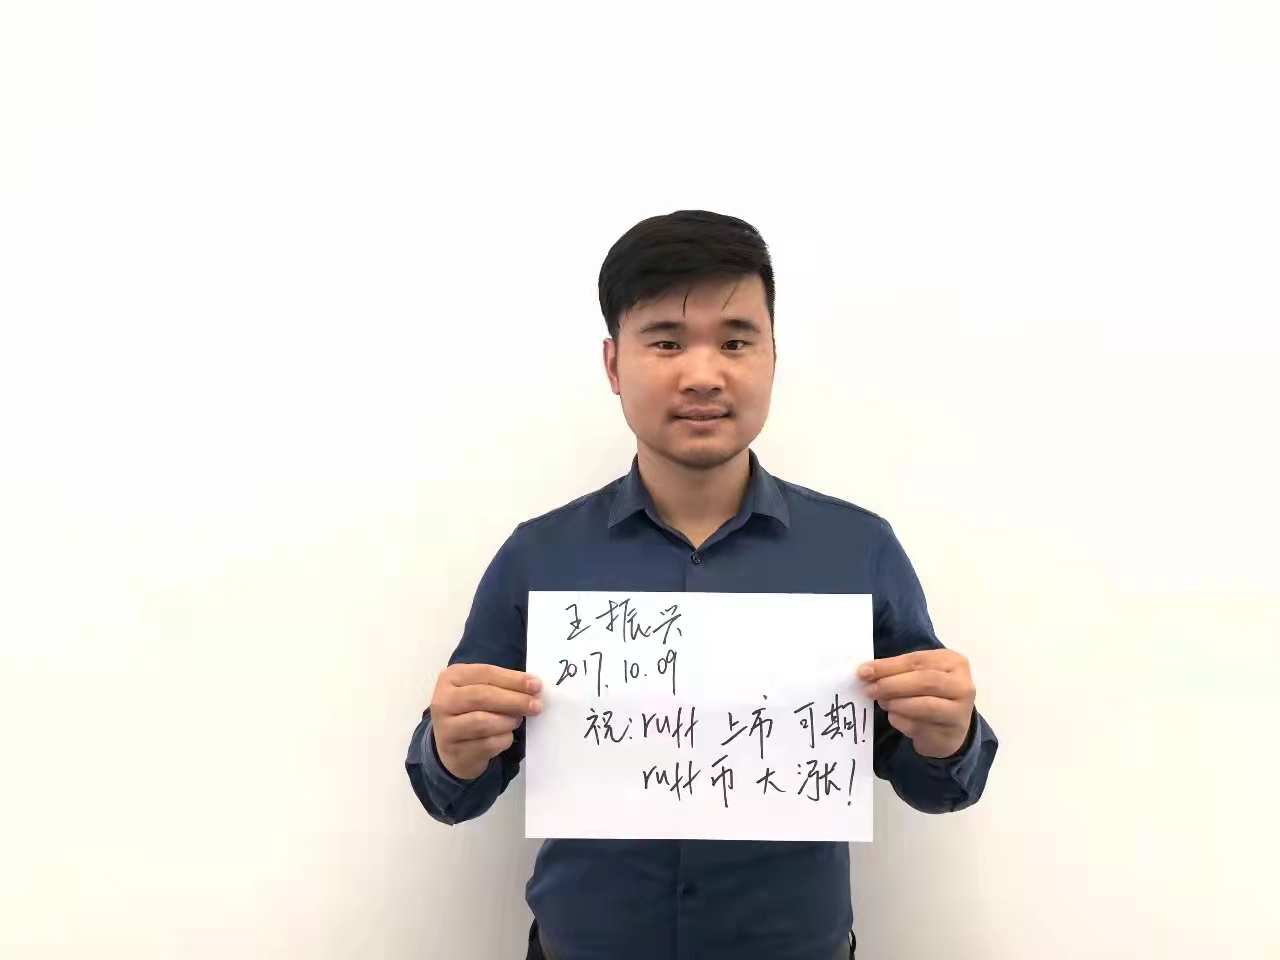 王振兴
2017.10.09
祝:ruff 上市可期!
ruff币大涨!